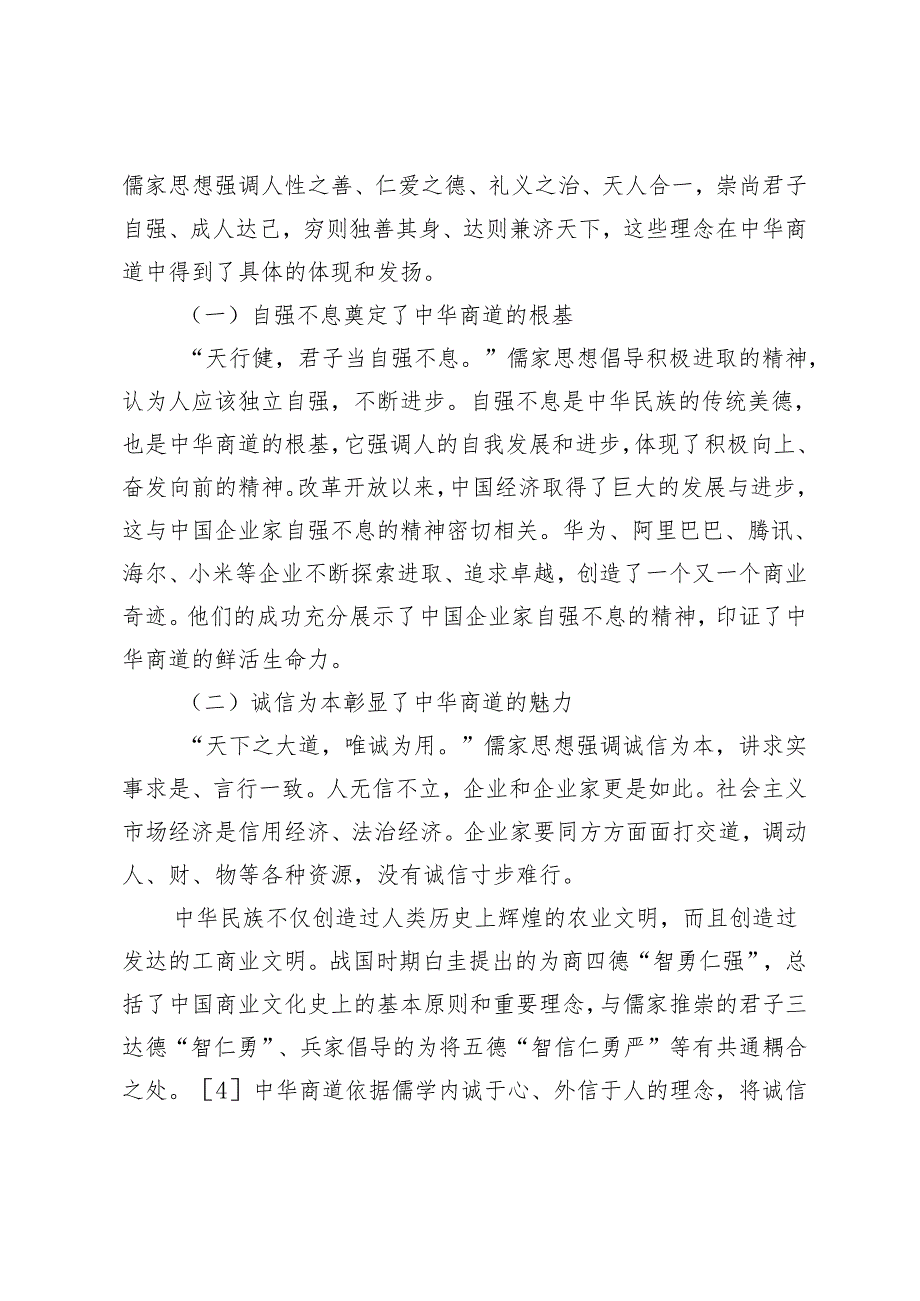 儒家思想强调人性之善、仁爱之德、礼义之治、天人合一，崇尚君子
自强、成人达己，穷则独善其身、达则兼济天下，这些理念在中华商
道中得到了具体的体现和发扬。
（一）自强不息奠定了中华商道的根基
“天行健，君子当自强不息。”儒家思想倡导积极进取的精神，
认为人应该独立自强，不断进步。自强不息是中华民族的传统美德，
也是中华商道的根基，它强调人的自我发展和进步，体现了积极向上、
奋发向前的精神。改革开放以来，中国经济取得了巨大的发展与进步，
这与中国企业家自强不息的精神密切相关。华为、阿里巴巴、腾讯、
海尔、小米等企业不断探索进取、追求卓越，创造了一个又一个商业
奇迹。他们的成功充分展示了中国企业家自强不息的精神，印证了中
华商道的鲜活生命力。
（二）诚信为本彰显了中华商道的魅力
“天下之大道，唯诚为用。”儒家思想强调诚信为本，讲求实
事求是、言行一致。人无信不立，企业和企业家更是如此。社会主义
市场经济是信用经济、法治经济。企业家要同方方面面打交道，调动
人、财、物等各种资源，没有诚信寸步难行。
中华民族不仅创造过人类历史上辉煌的农业文明，而且创造过
发达的工商业文明。战国时期白圭提出的为商四德“智勇仁强”，总
括了中国商业文化史上的基本原则和重要理念，与儒家推崇的君子三
达德“智仁勇”、兵家倡导的为将五德“智信仁勇严”等有共通耦合
之处。［4］中华商道依据儒学内诚于心、外信于人的理念，将诚信